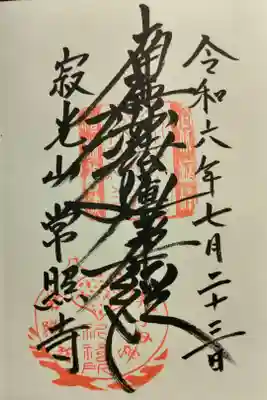 令和六年七月二十三日
南無妙法蓮華経
寂光山 常照寺